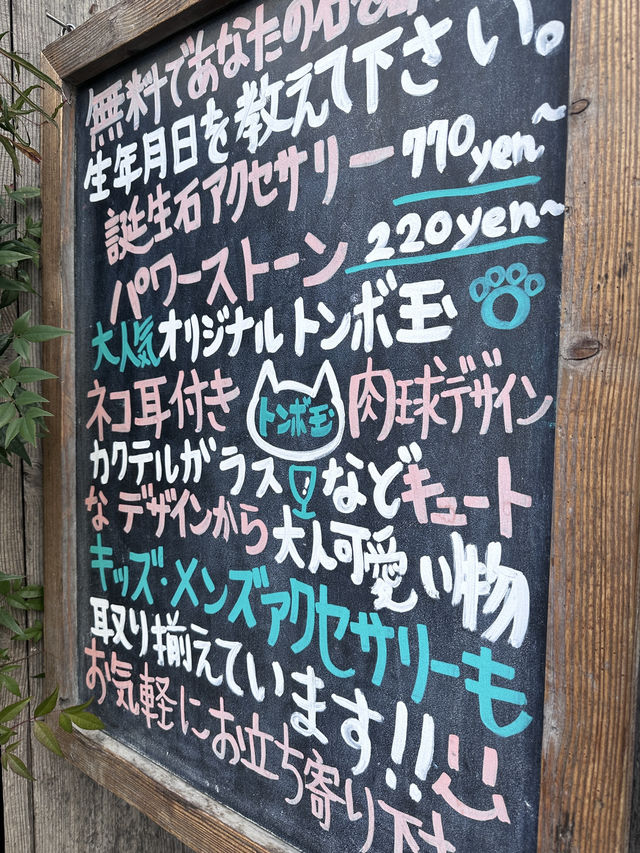 無料であなたの石を
生年月日を教えて下さい。
誕生石アクセサリー 770yen~
パワーストーン 220yen~
大人気オリジナルトンボ玉
ネコ耳付き トンボ玉 肉球デザイン
カクテルガラスなどキュート
なデザインから大人可愛い物
キッズ・メンズアクセサリーも
取り揃えています!!
お気軽にお立ち寄り下